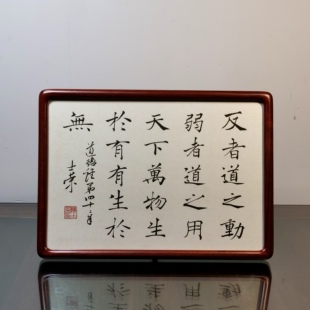 反者道之動
弱者道之用
天下萬物生
於有有生於
無
道德經第四十章